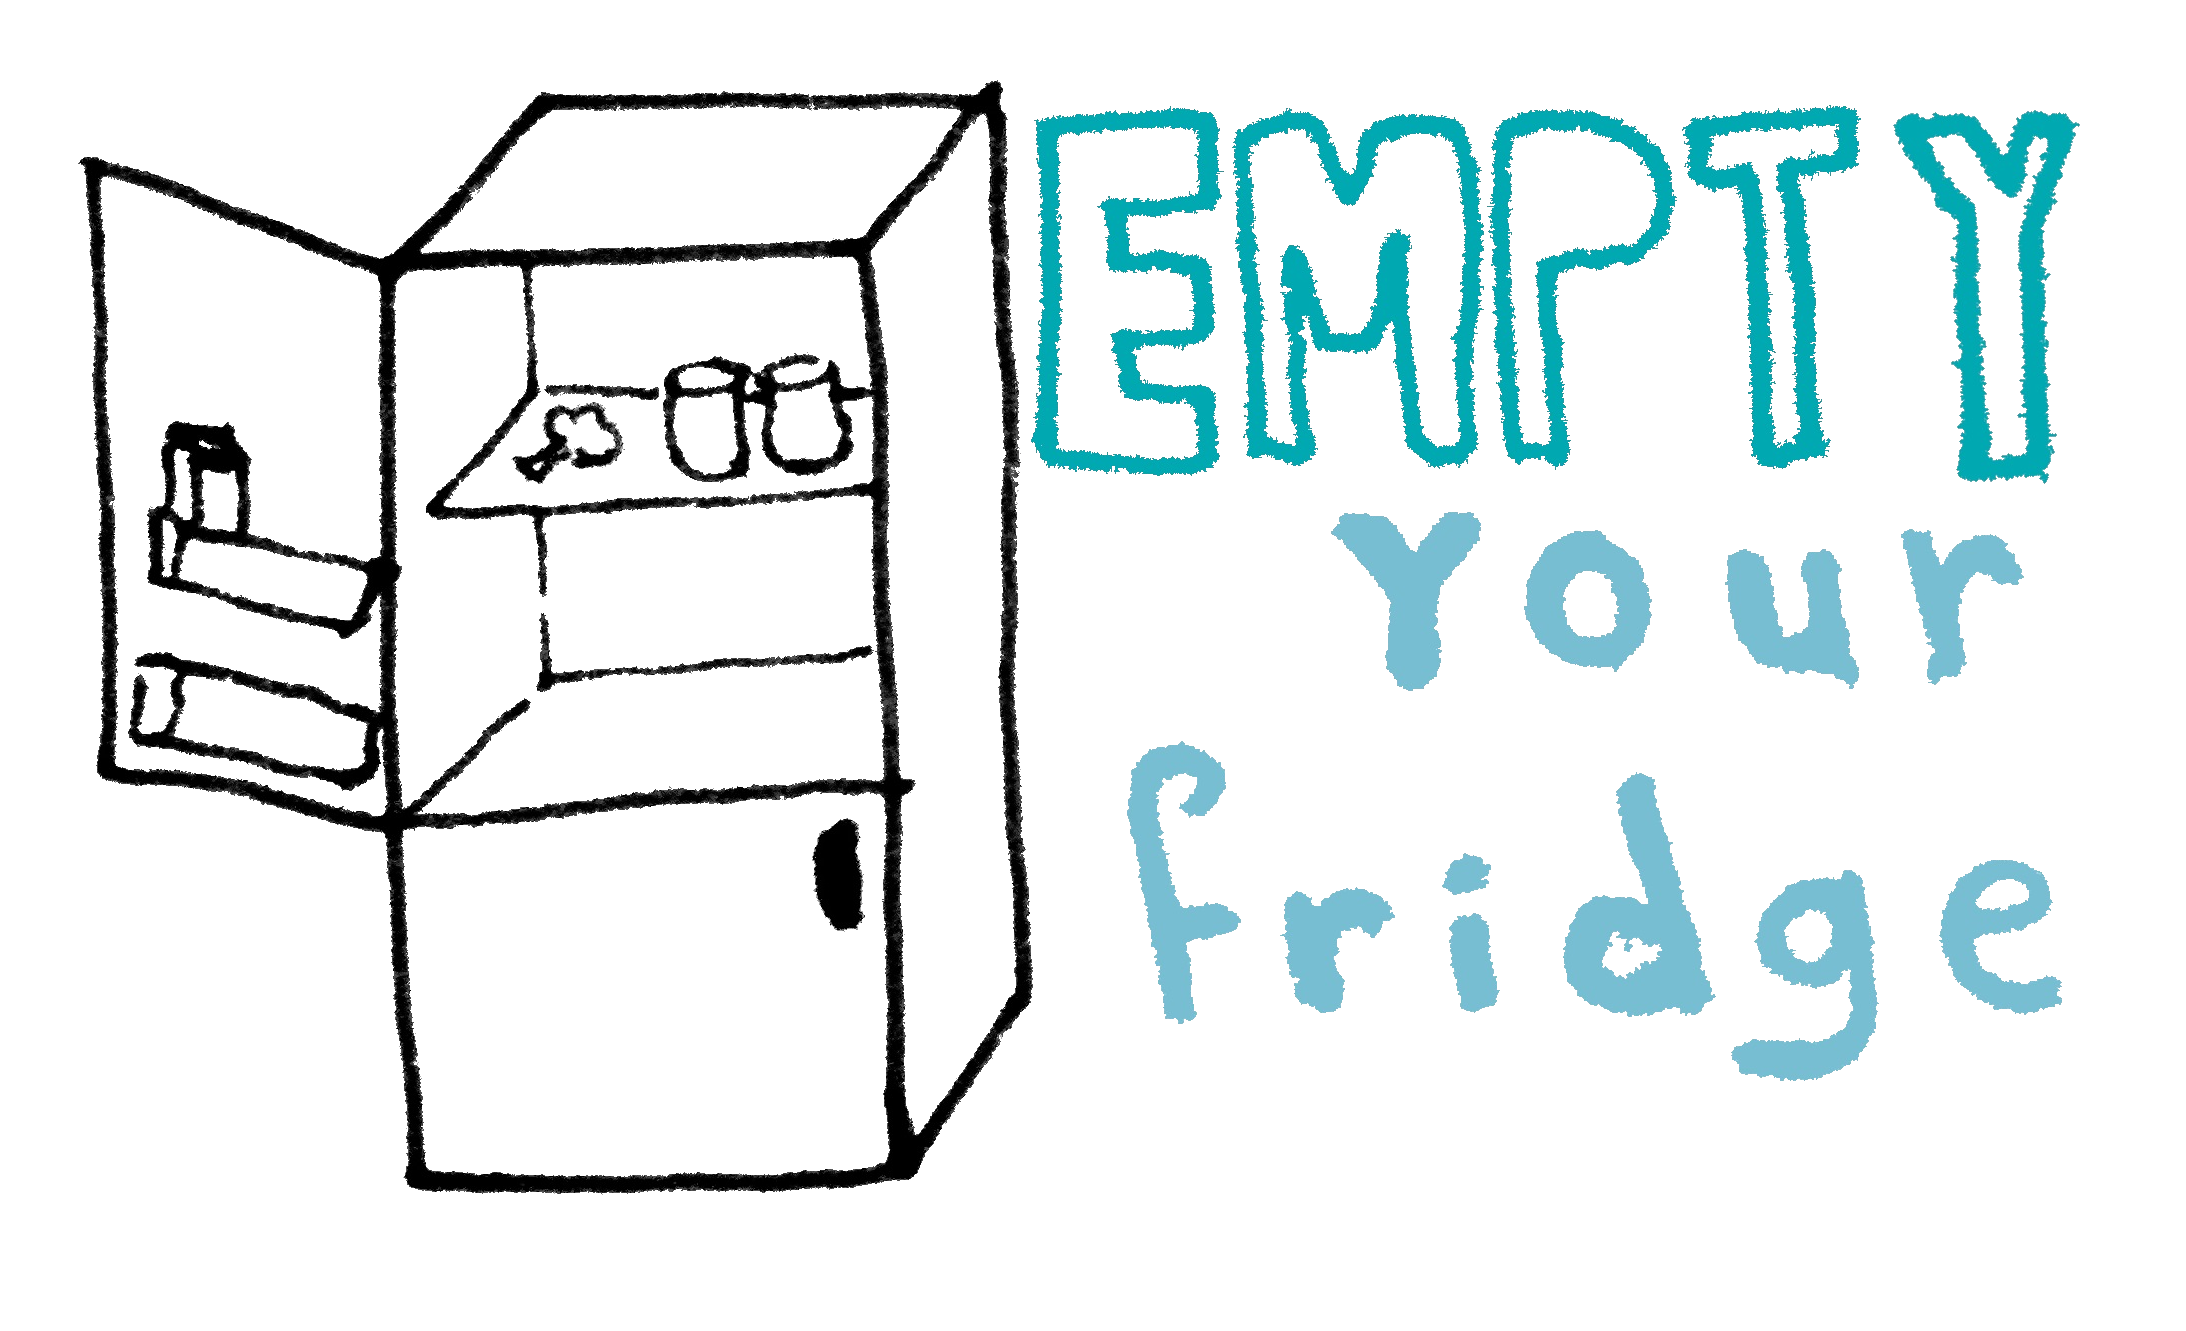 EMPTY
Your
fridge